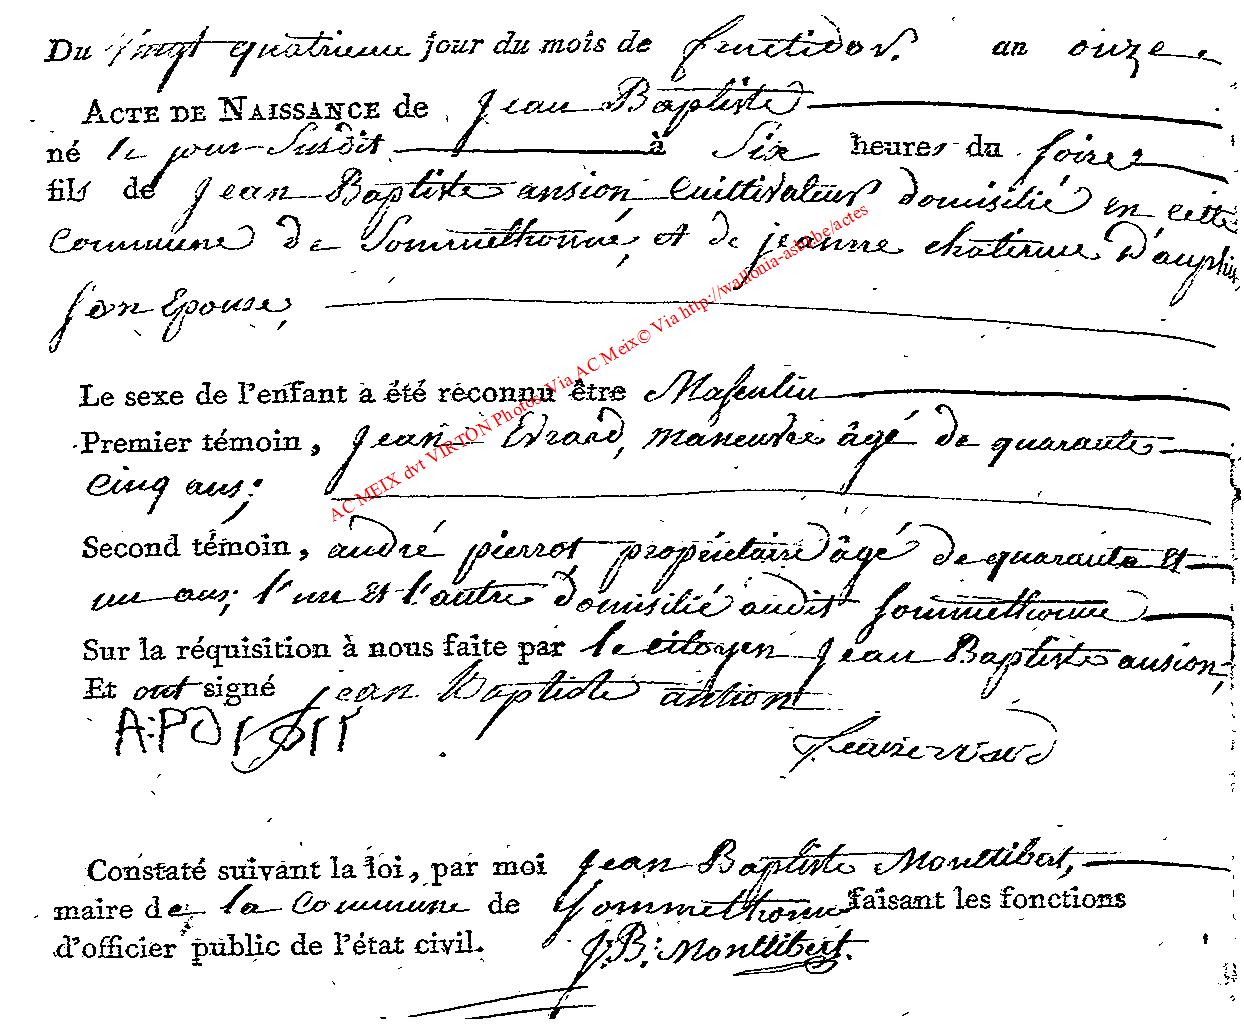 Du Vingt quatrieme jour du mois de fructidor. an onze.
ACTE DE NAISSANCE de Jean Baptiste
né le jour Susdit à Six heures du soire
fils de Jean Baptiste ansion Cultivateur domisilié en cette
Commune de Sommethonne, et de jeanne chaterine D'auphin,
son Epouse,
Le sexe de l'enfant a été reconnu être Masculin
Premier témoin, Jean Evrard, maneuvre âgé de quarante
Cinq ans;
Second témoin, andré pierrot propriétaire âgé de quarante Et
un ans; l'un Et l'autre domisilié audit Sommethonne
Sur la réquisition à nous faite par le citoyen Jean Baptiste ansion,
Et ont signé jean Baptiste antion
A:PO
Constaté suivant la loi, par moi Jean Baptiste Montlibert,
maire de la Commune de Sommethonne faisant les fonctions
d'officier public de l'état civil. J:B: Montlibert.
AC MEIX dvt VIRTON Photos Via AC Meix© Via http://wallonia-asbl.be/actes